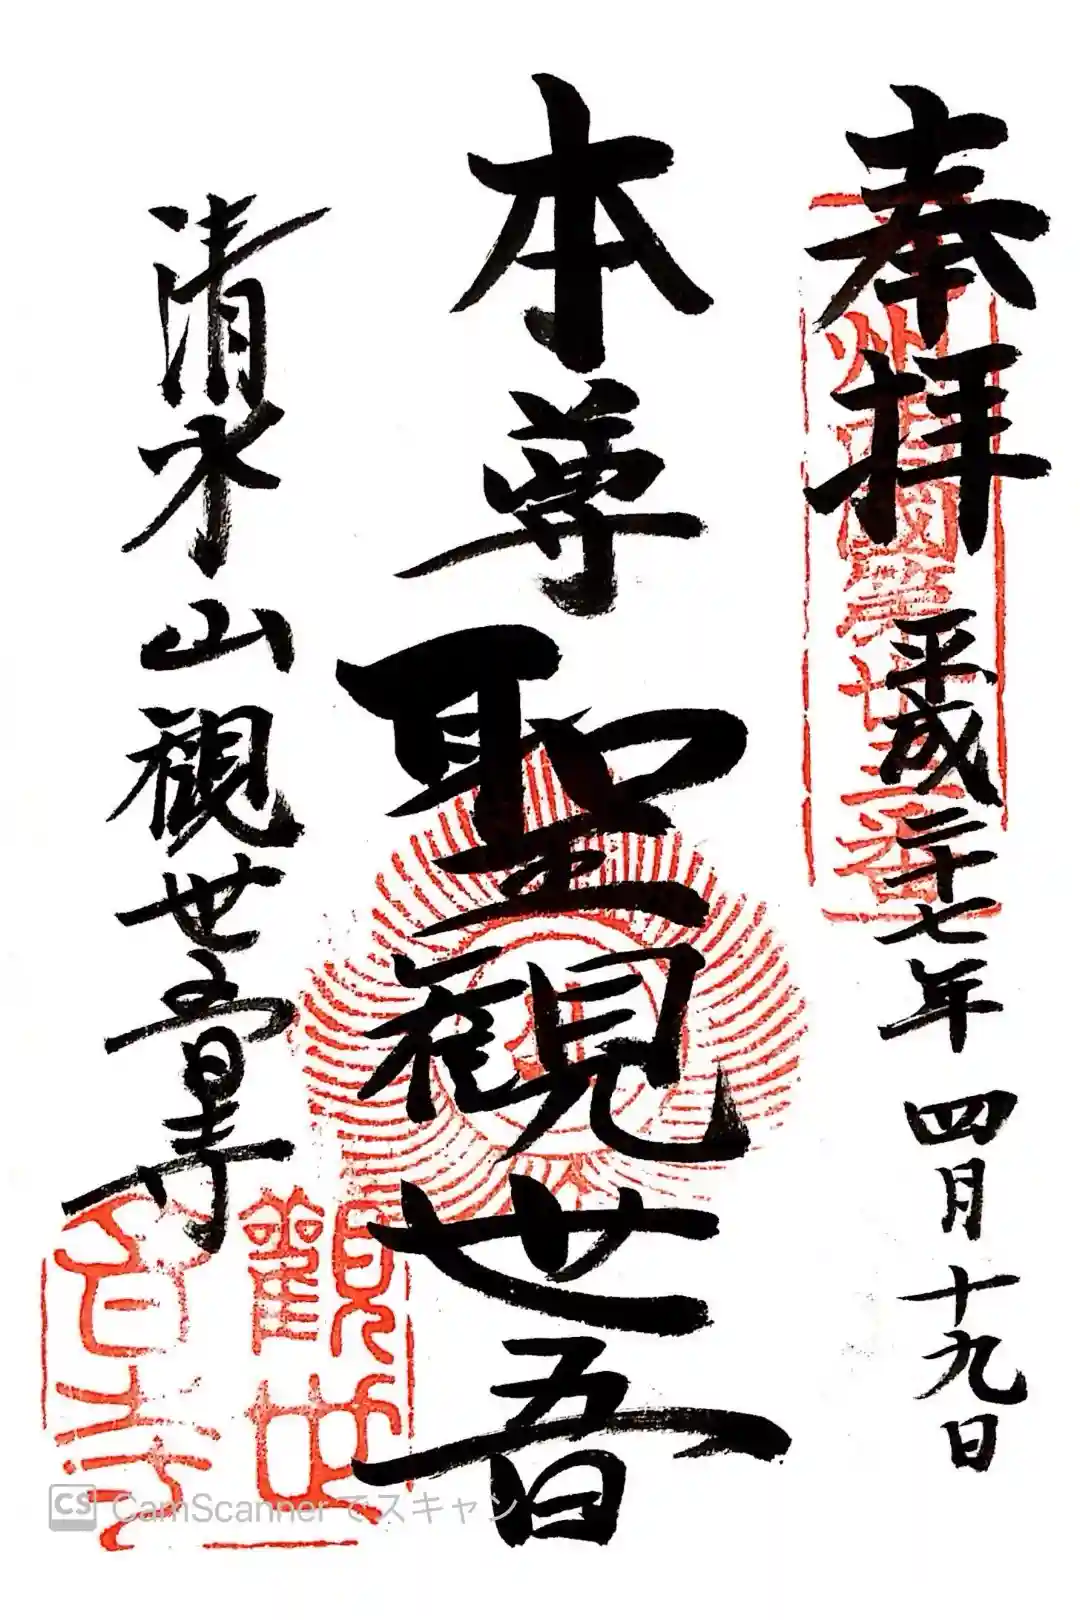 奉拝
平成二十七年 四月十九日
本尊聖観世音
清水山観世音寺
観世音寺
CS CamScanner でスキャン